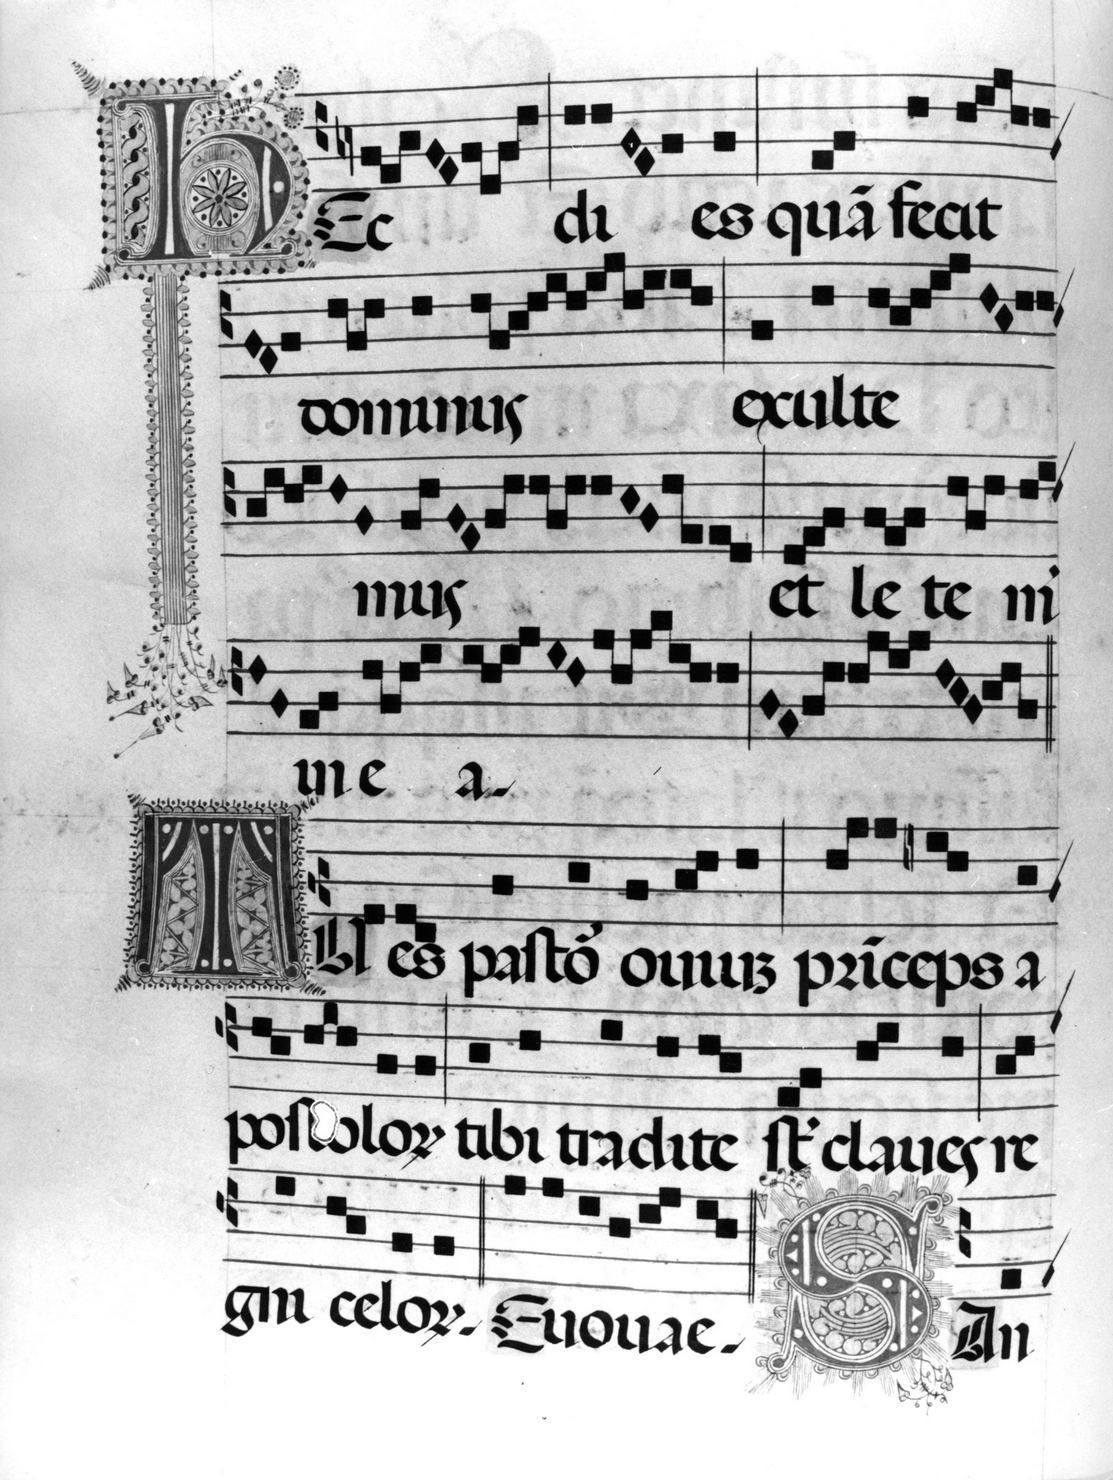 HEc di es quā fecit
dominus exulte
mus et le te m̄
ini e a.
TU es pastoꝛ̄ ouiuꝫ prīceps a
postoloꝝ tibi tradite st̄ claues re
gni celoꝝ. Euouae. SAn